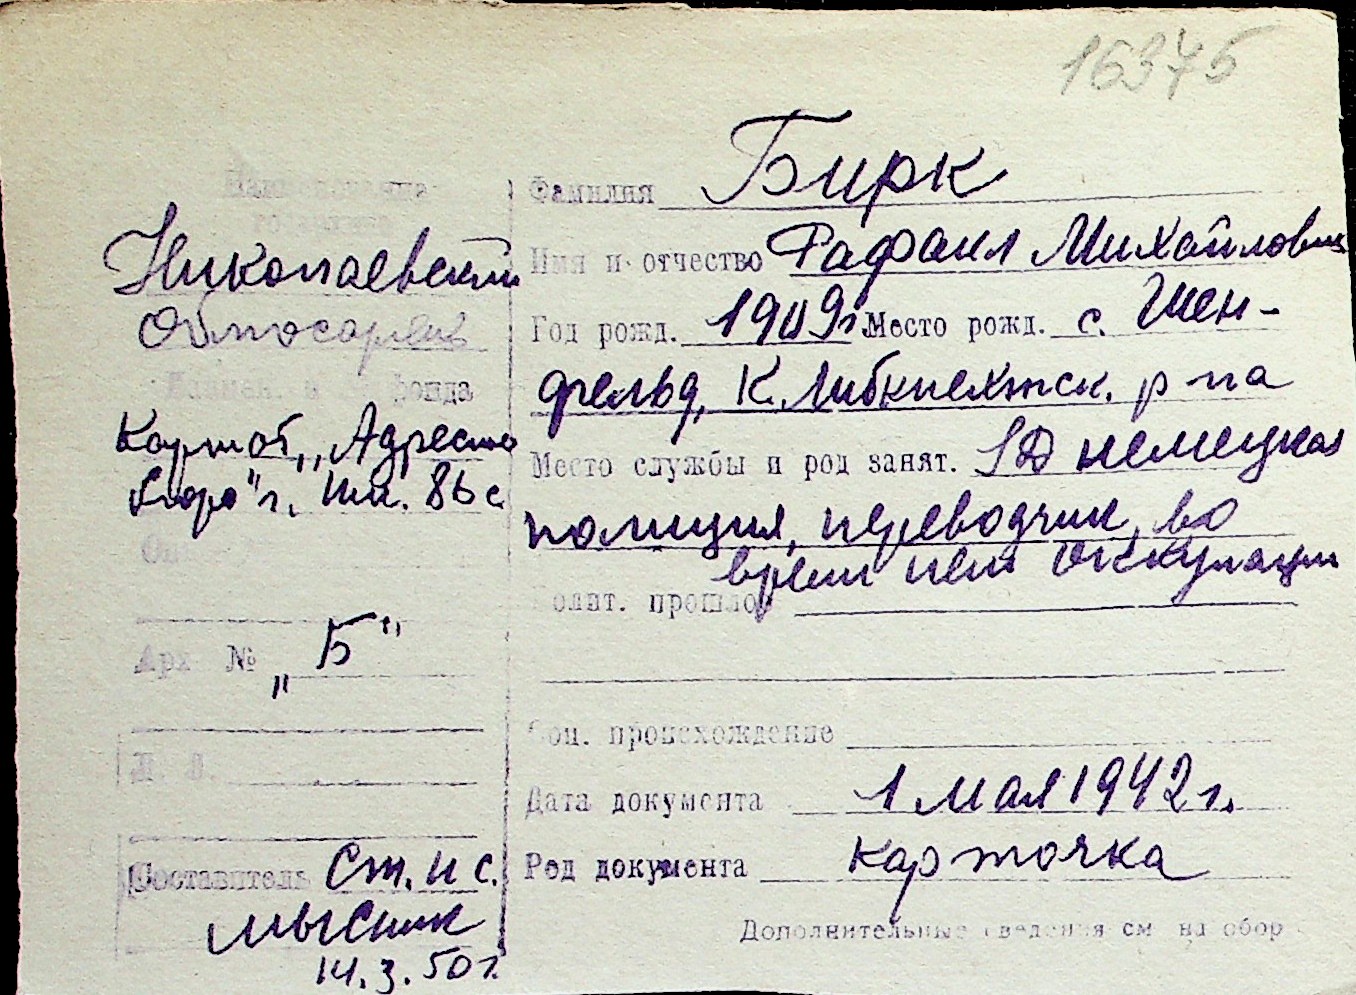 16375
Наименование
Николаевский
Облгосархив
Наимен. и № фонда
Картот. „Адресно
бюро" г. Ник. 86 с
Оп.
Арх №  „Б"
Л. Л.
Составитель Ст. н с.
Мысник
14.3.50 г.
Фамилия Бирк
Имя и отчество Рафаил Михайлович
Год рожд. 1909г. Место рожд. с. Шен-
фельд, К. Либкнехтск. р-на
Место службы и род занят. СД немецкая
полиция, переводчик, во
время нем оккупации
Полит. прошлое
Соц. происхождение
Дата документа 1 мая 1942 г.
Род документа карточка
Дополнительные сведения см на обор